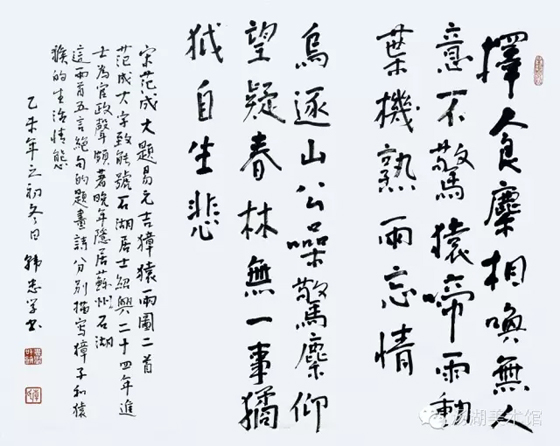 擇食麋相喚無人
意不驚猿啼雨動
葉機熟兩忘情
烏逐山公噪驚麋仰
望疑春林無一事獝
狘自生悲
宋范成大題易元吉獐猿兩圖二首
范成大字致能號石湖居士紹興二十四年進
士為官政聲頗著晚年隱居蘇州石湖
這兩首五言絕句的題畫詩分別描寫獐子和猿
猴的生活情態
乙未年之初冬日韓志學書
湖美术馆